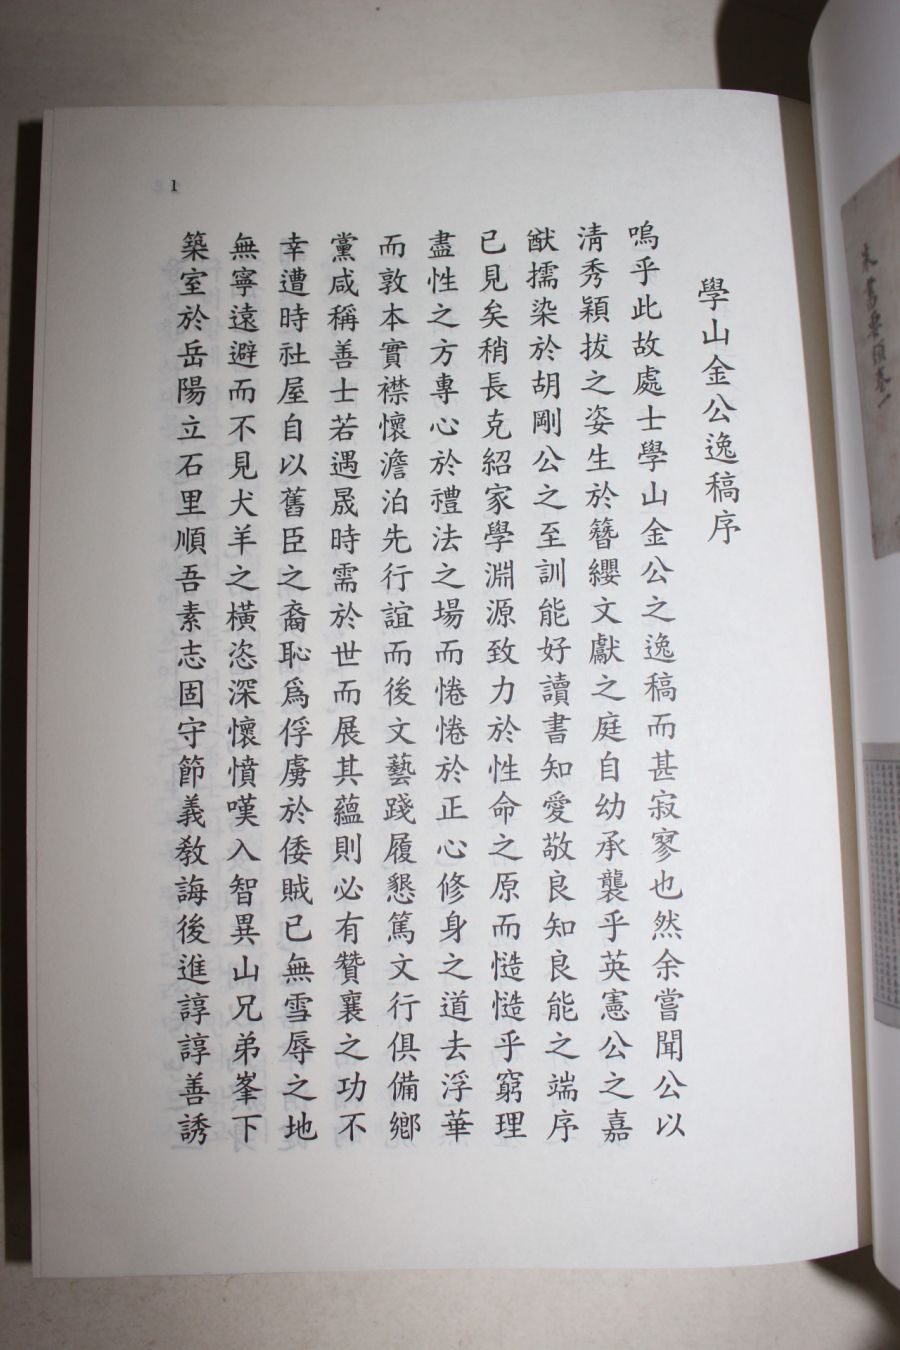 學山金公逸稿序
嗚乎此故處士學山金公之逸稿而甚寂寥也然余嘗聞公以
淸秀穎拔之姿生於簪纓文獻之庭自幼承襲乎英憲公之嘉
猷擩染於胡剛公之至訓能好讀書知愛敬良知良能之端序
已見矣稍長克紹家學淵源致力於性命之原而慥慥乎窮理
盡性之方專心於禮法之場而惓惓於正心修身之道去浮華
而敦本實襟懷澹泊先行誼而後文藝踐履懇篤文行俱備鄕
黨咸稱善士若遇晟時需於世而展其蘊則必有贊襄之功不
幸遭時社屋自以舊臣之裔恥爲俘虜於倭賊已無雪辱之地
無寧遠避而不見犬羊之橫恣深懷憤嘆入智異山兄弟峯下
築室於岳陽立石里順吾素志固守節義敎誨後進諄諄善誘
1